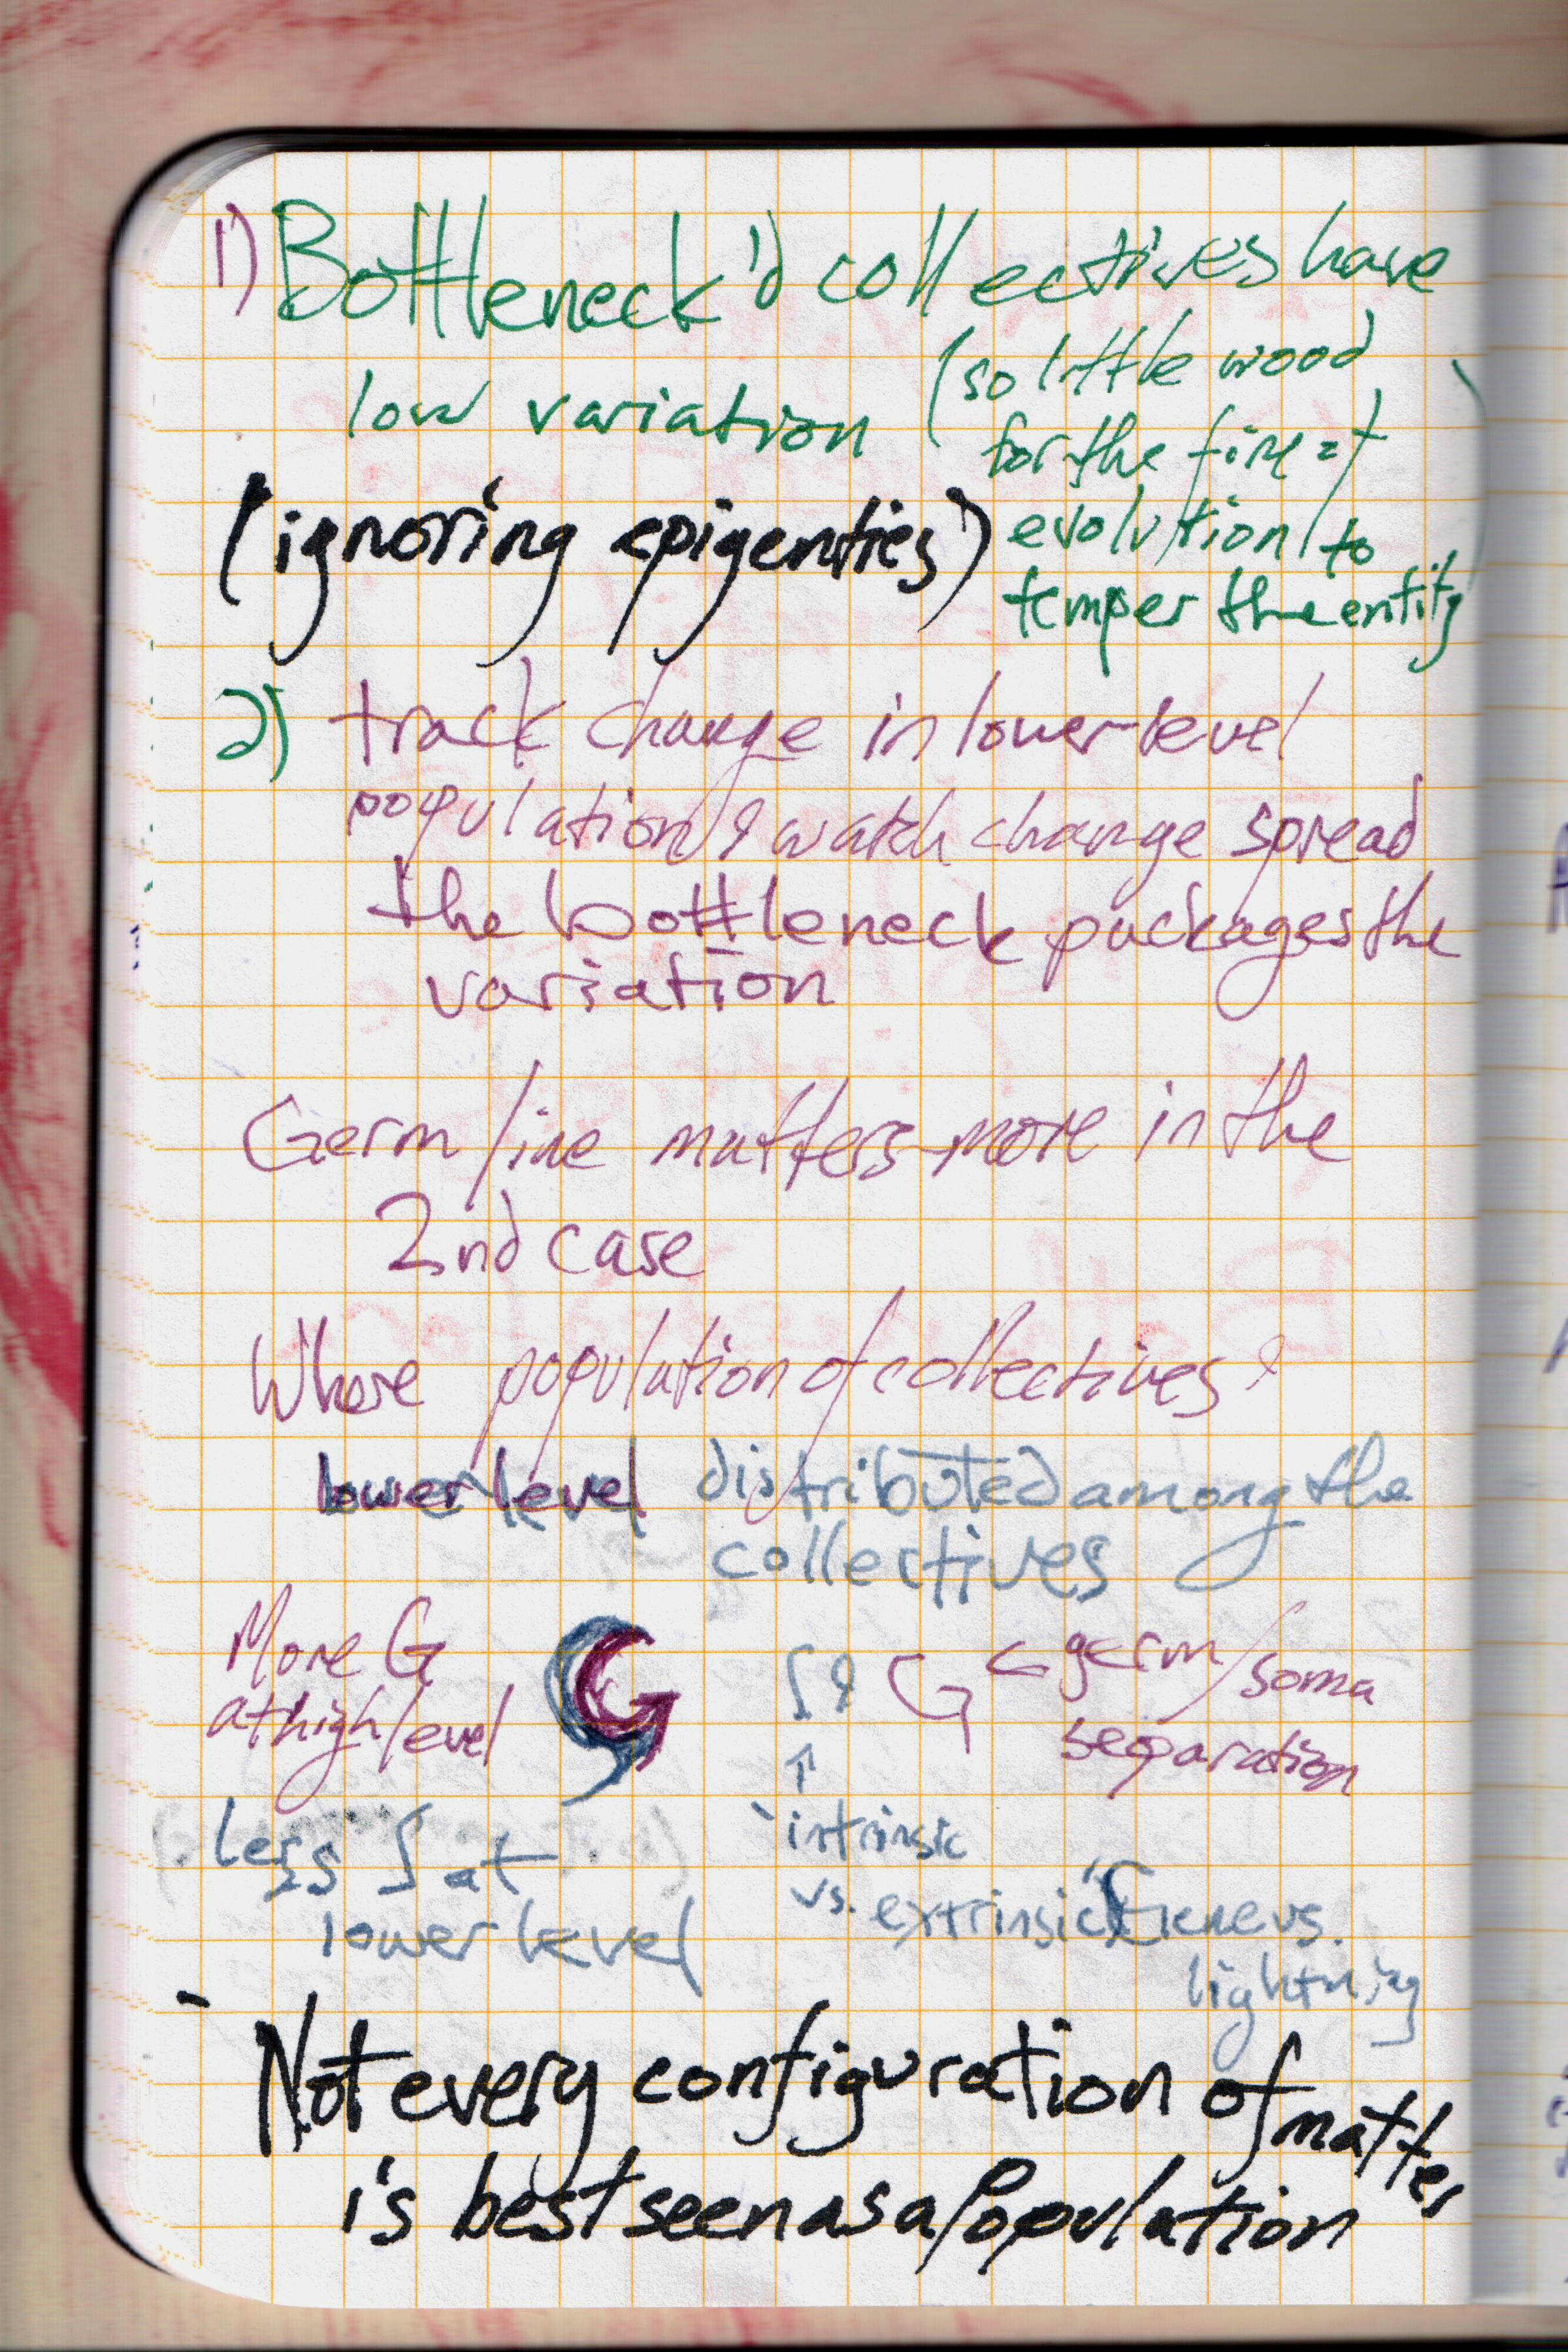 1) Bottleneck'd collectives have
low variation (so little wood
for the fire of
evolution to
temper the entity)
(ignoring epigentics)
2) track change in lower-level
population & watch change spread
the bottleneck packages the
variation
Germ line matters more in the
2nd case
Where population of collectives &
lower level distributed among the
collectives
More G
at high level
G
S & G ← germ/soma
separation
↑
less S at
lower level
intrinsic
vs. extrinsic
lightning
- Not every configuration of matter
is best seen as a population